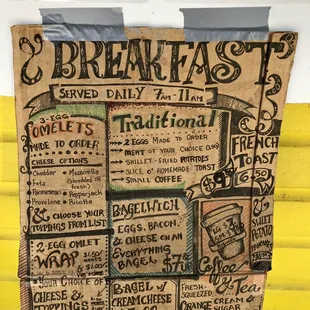 BREAKFAST
SERVED DAILY 7am-11am
3-EGG
OMELETS
MADE TO ORDER
CHEESE OPTIONS
Cheddar
Feta
Parmesan
Provolone
Pepperjack
Ricotta
& CHOOSE YOUR
TOPPINGS FROM LIST
2-EGG OMLET
WRAP
Your Choice of
CHEESE &
TOPPINGS
Traditional
2 EGGS MADE TO ORDER
MEAT OF YOUR CHOICE
SKILLET-FRIED POTATOES
SLICE O' HOMEMADE TOAST
SMALL COFFEE
BAGELWICH
EGGS, BACON,
& CHEESE ON AN
EVERYTHING
BAGEL
BAGEL w/
CREAM CHEESE
FRENCH
TOAST
6.50
& SWEET
POTATO
Coffee
& Tea
FRESH-
SQUEEZED
ORANGE
CREAM &
SUGAR